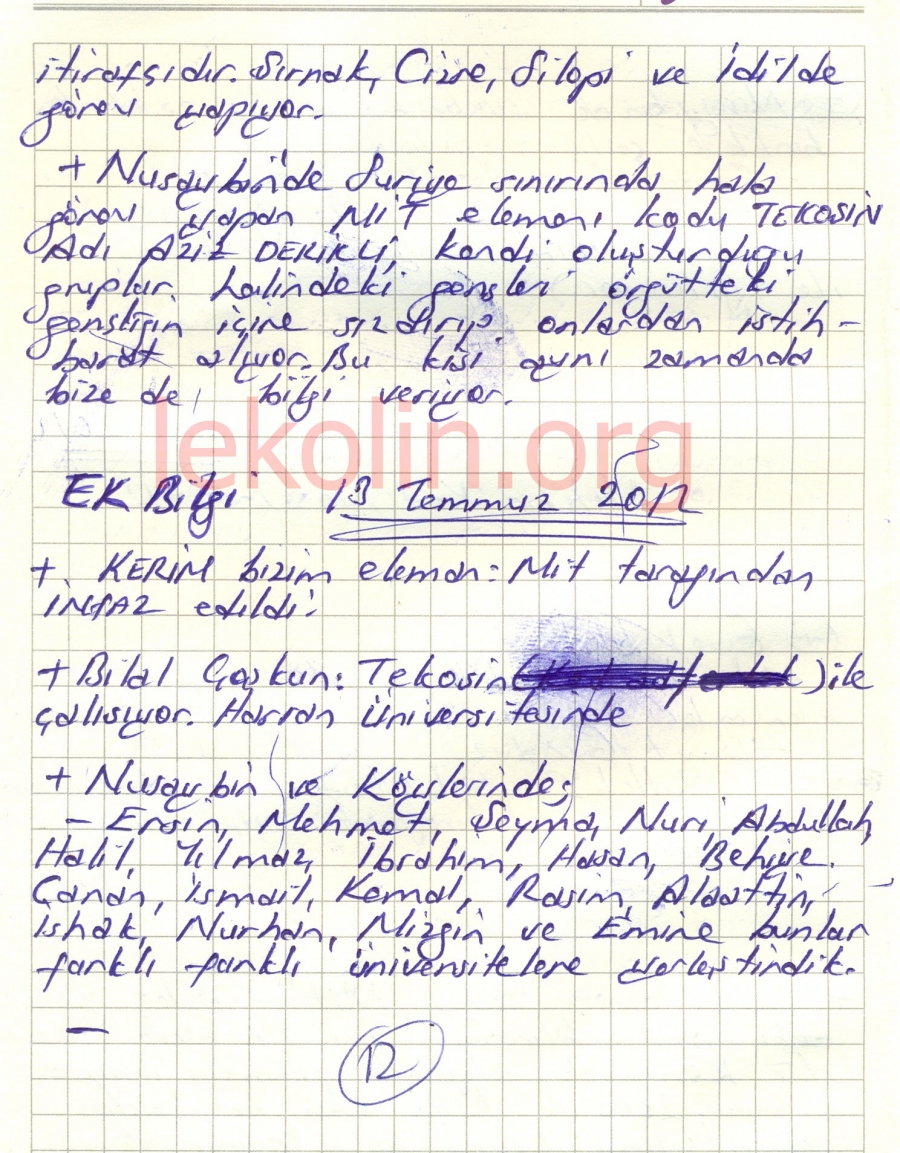 itirafçıdır. Şırnak, Cizre, Silopi ve İdilde
görev yapıyor.
+ Nusaybin'de Suriye sınırında hala
görev yapan MİT elemanı kodu TEKOSİN
Adı AZİZ DERİKLİ, kendi oluşturduğu
gruplar halindeki gençleri örgütteki
gençliğin içine sızdırıp onlardan istih-
barat alıyor. Bu kişi aynı zamanda
bize de bilgi veriyor.
lekolin.org
EK Bilgi 13 Temmuz 2012
+ KERİM bizim eleman: Mit tarafından
İNFAZ edildi.
+ Bilal Çoşkun: Tekosin ( ) ile
çalısıyor. Harran Üniversitesinde
+ Nusaybin ve Köylerinde;
- Ersin, Mehmet, Şeyma, Nuri, Abdullah,
Halil, Yılmaz, İbrahim, Hasan, Behiye.
Canan, İsmail, Kemal, Rasim, Alaattin,
İshak, Nurhan, Mizgin ve Emine bunlar
farklı farklı üniversitelere yerleştirdik.
-
12